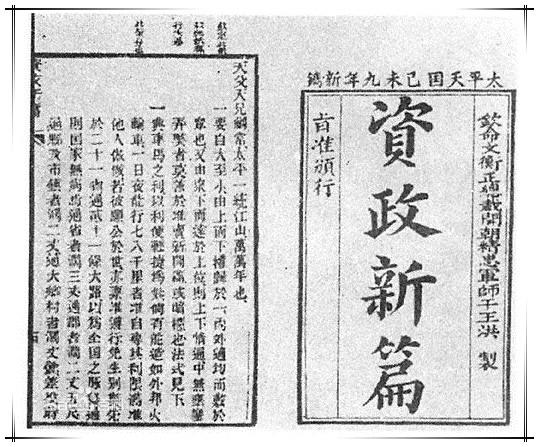 太平天囯己未九年新鐫
欽命文衡正總裁開朝精忠軍師干王洪 製
資政新篇
旨准頒行
天父天兄綱常太平一統江山萬萬年也
一要自大至小由上而下權歸於一內外適均而敷於
眾也又由眾下而達於上位則上下情通中無壅塞
弄弊者莫善於准賣新聞篇或暗櫃也法式見下
一興車馬之利以利便輕捷為妙倘有能造如外邦火
輪車一日夜能行七八千里者准自專其利限滿准
他人倣做若彼願公於世亦稟准遵行免生別弊先
於二十一省通二十一條大路以為全国之脉絡通
則国家無病焉通省者濶三丈通郡者濶二丈五尺
通縣及市鎮者濶二丈通大鄉村者濶丈餘